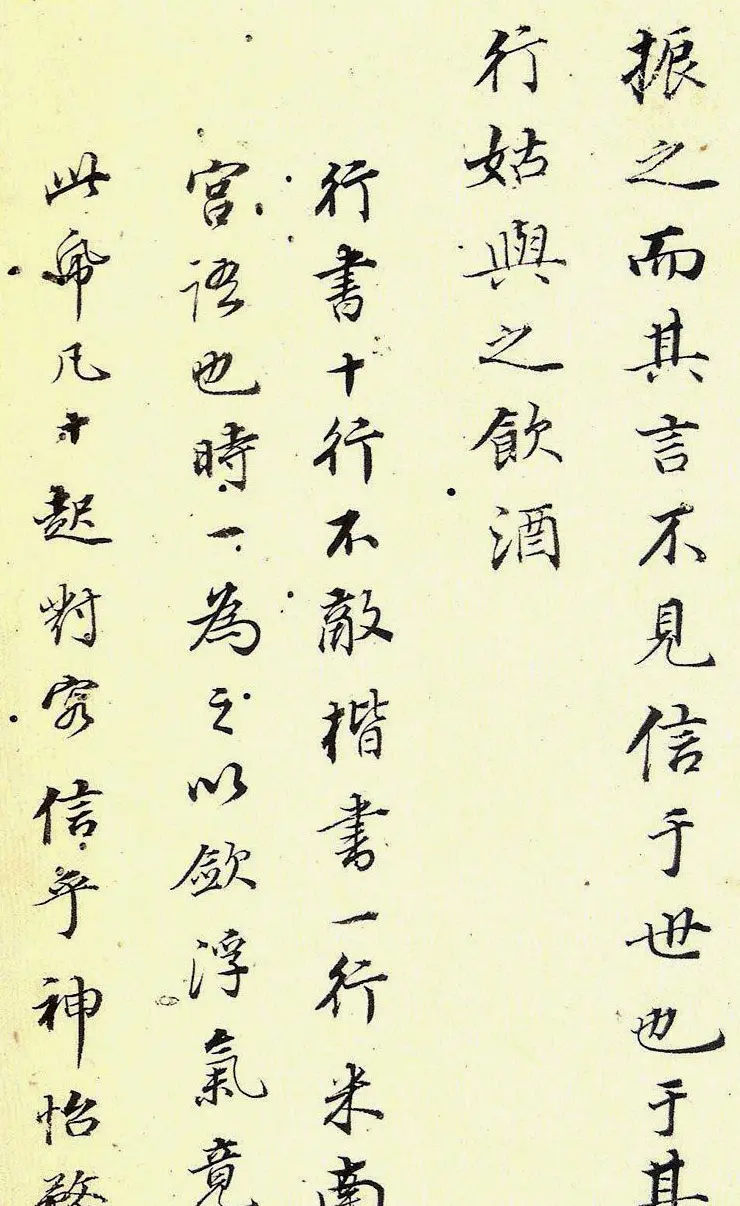 振之而其言不見信于世也于其
行姑與之飲酒
行書十行不敵楷書一行米南
宮語也時一為之以斂浮氣竟
此帋凡十起對客信乎神怡務